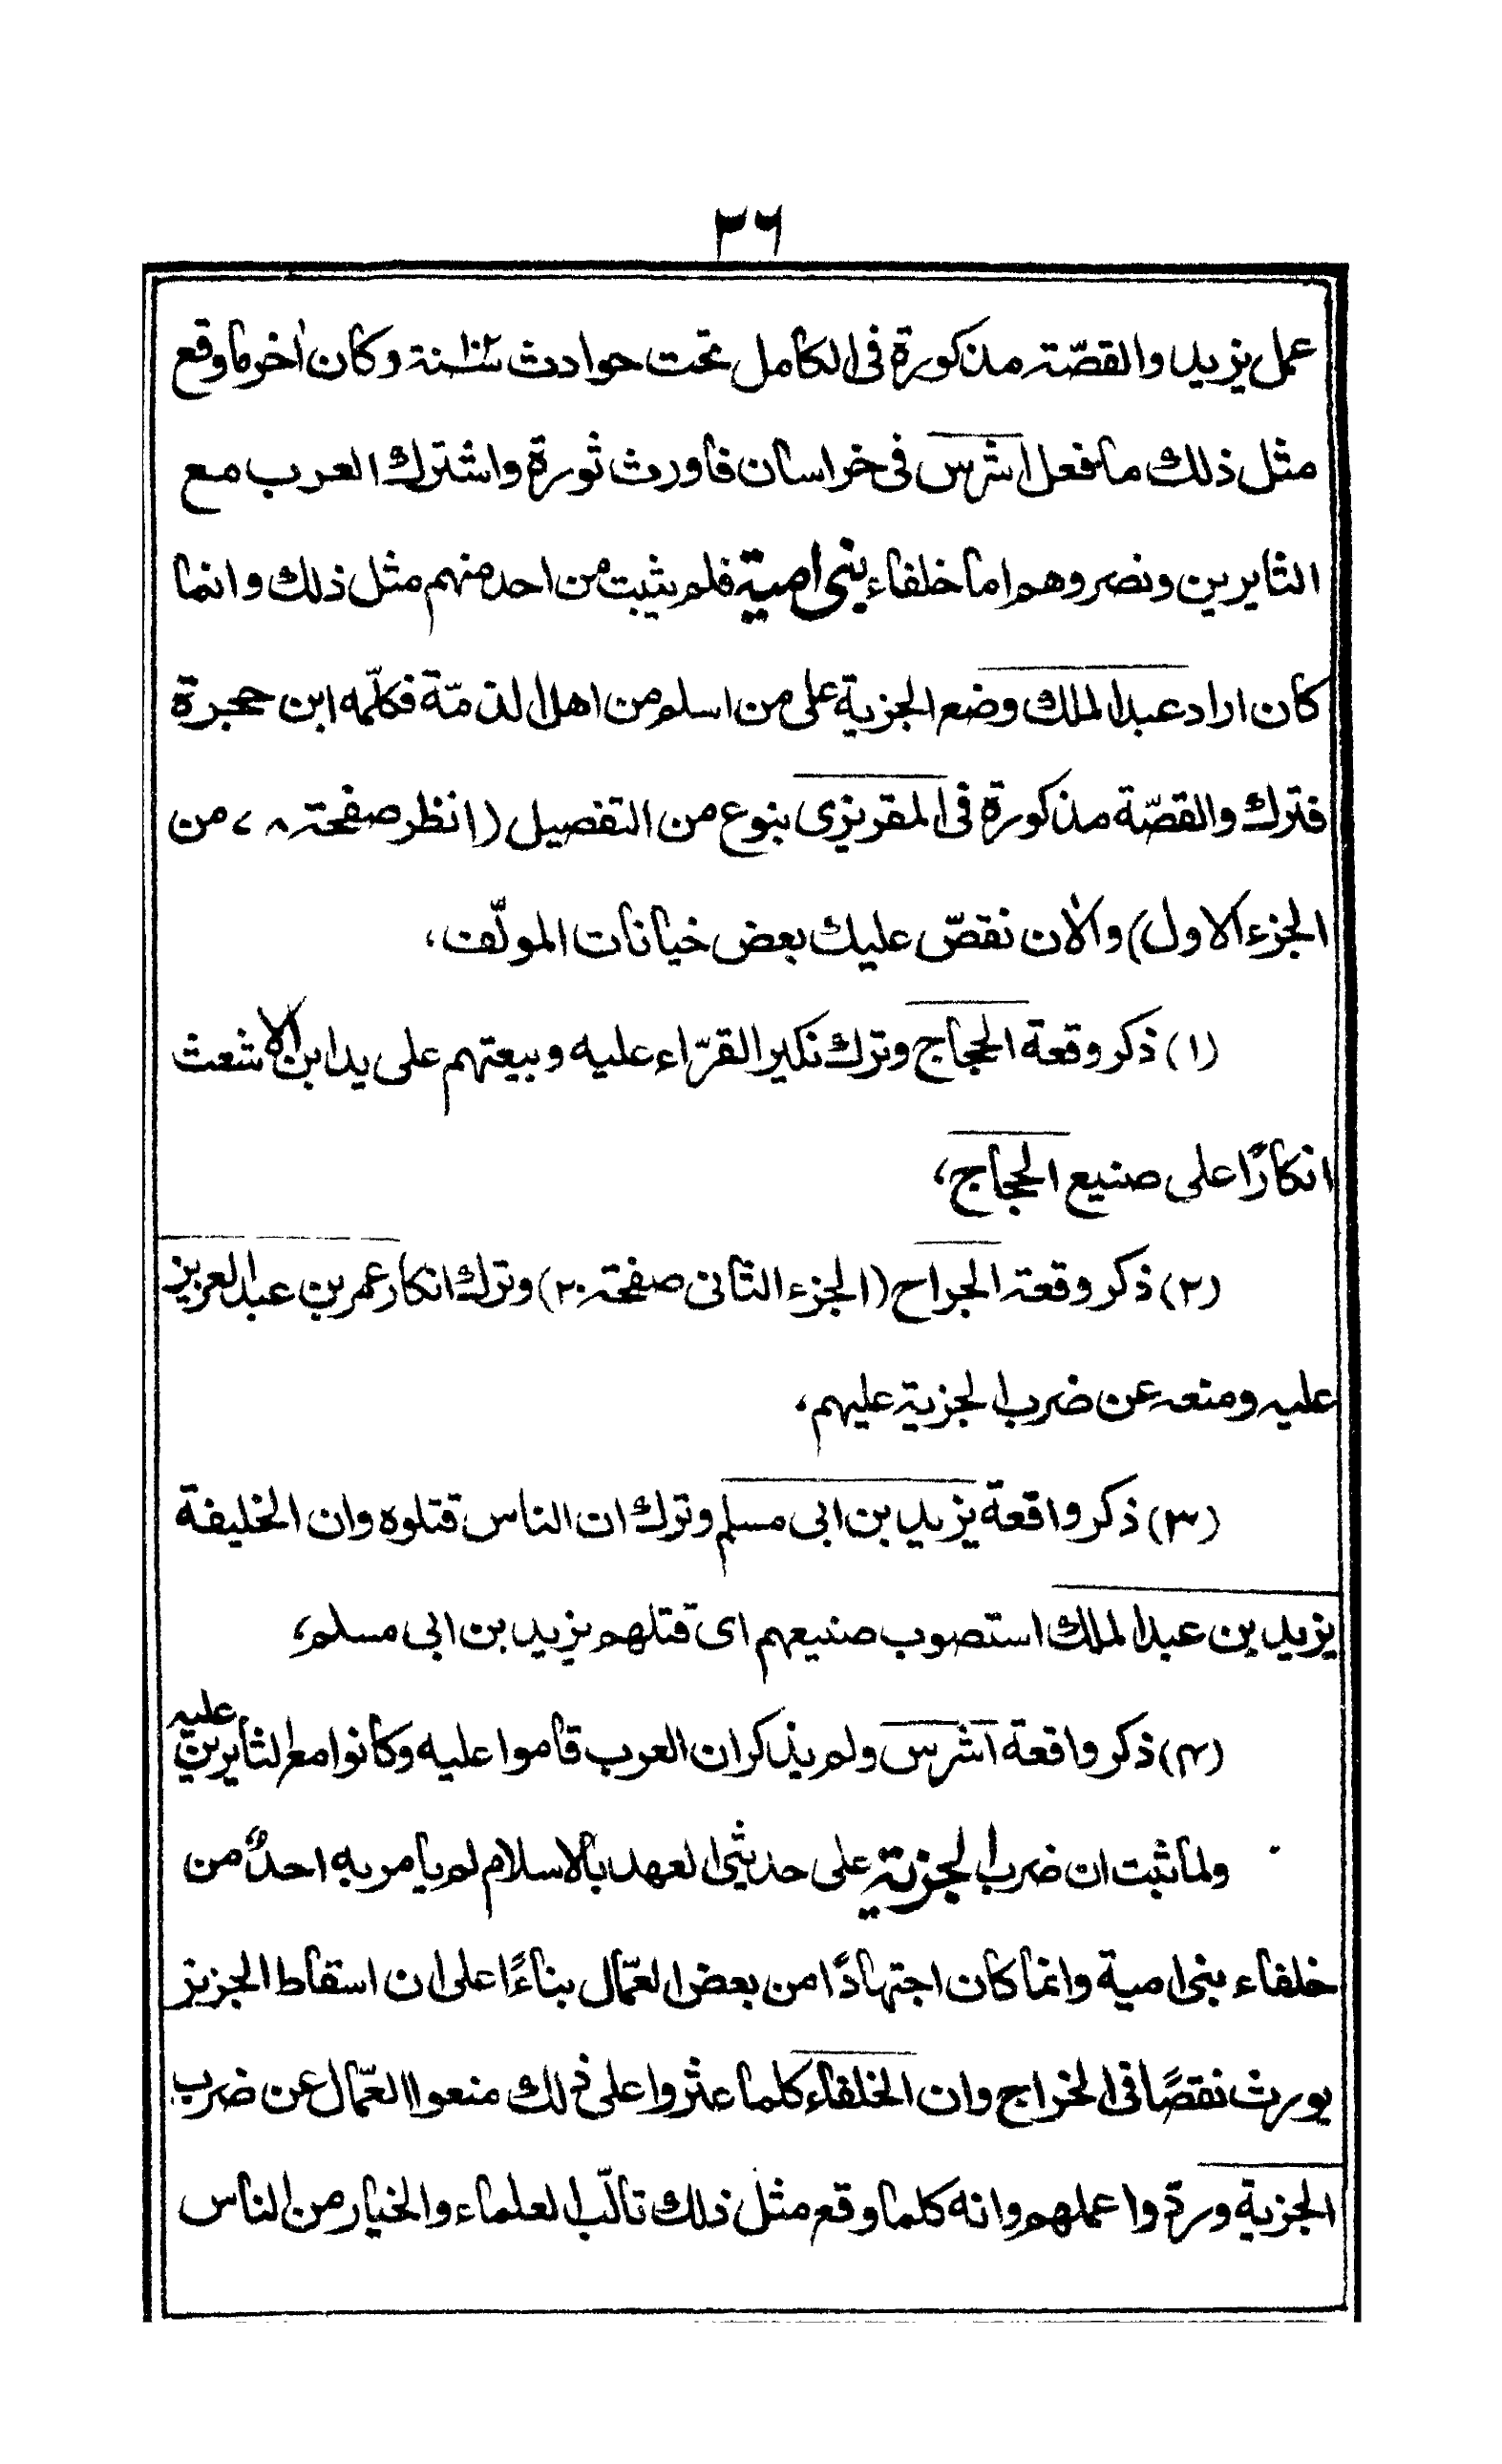 ٣٦
عمل يزيد والقصّة مذكورة فى الكامل تحت حوادث سنة ١٠٢ وكان اخر ما وقع
مثل ذلك ما فعل اشرس فى خراسان فاورث ثورة واشترك العرب مع
الثايرين ونصروهم اما خلفاء بنى امية فلم يثبت من احد منهم مثل ذلك وانما
كان اراد عبد الملك وضع الجزية على من اسلم من اهل الذمّة فكلّمه ابن حجرة
فترك والقصّة مذكورة فى المقريزى بنوع من التفصيل (انظر صفحة ٧٨ من
الجزء الاول) والآن نقصّ عليك بعض خيانات المولّف،
(١) ذكر وقعة الحجاج وترك نكير القرّاء عليه وبيعتهم على يد ابن الاشعث
انكارًا على صنيع الحجاج،
(٢) ذكر وقعة الجراح (الجزء الثانى صفحة ٢٠) وترك انكار عمر بن عبد العزيز
عليه ومنعه عن ضرب الجزية عليهم،
(٣) ذكر واقعة يزيد بن ابى مسلم وترك ان الناس قتلوه وان الخليفة
يزيد بن عبد الملك استصوب صنيعهم اى قتلهم يزيد بن ابى مسلم،
(٤) ذكر واقعة اشرس ولم يذكر ان العرب قاموا عليه وكانوا مع الثايرين عليه
ولما ثبت ان ضرب الجزية على حديثى العهد بالاسلام لم يامر به احدٌ من
خلفاء بنى امية وانما كان اجتهادًا من بعض العمّال بناءً على ان اسقاط الجزية
يورث نقصًا فى الخراج وان الخلفاء كلما عثروا على ذلك منعوا العمّال عن ضرب
الجزية وردّوا عملهم وانه كلما وقع مثل ذلك تالّب العلماء والخيار من الناس